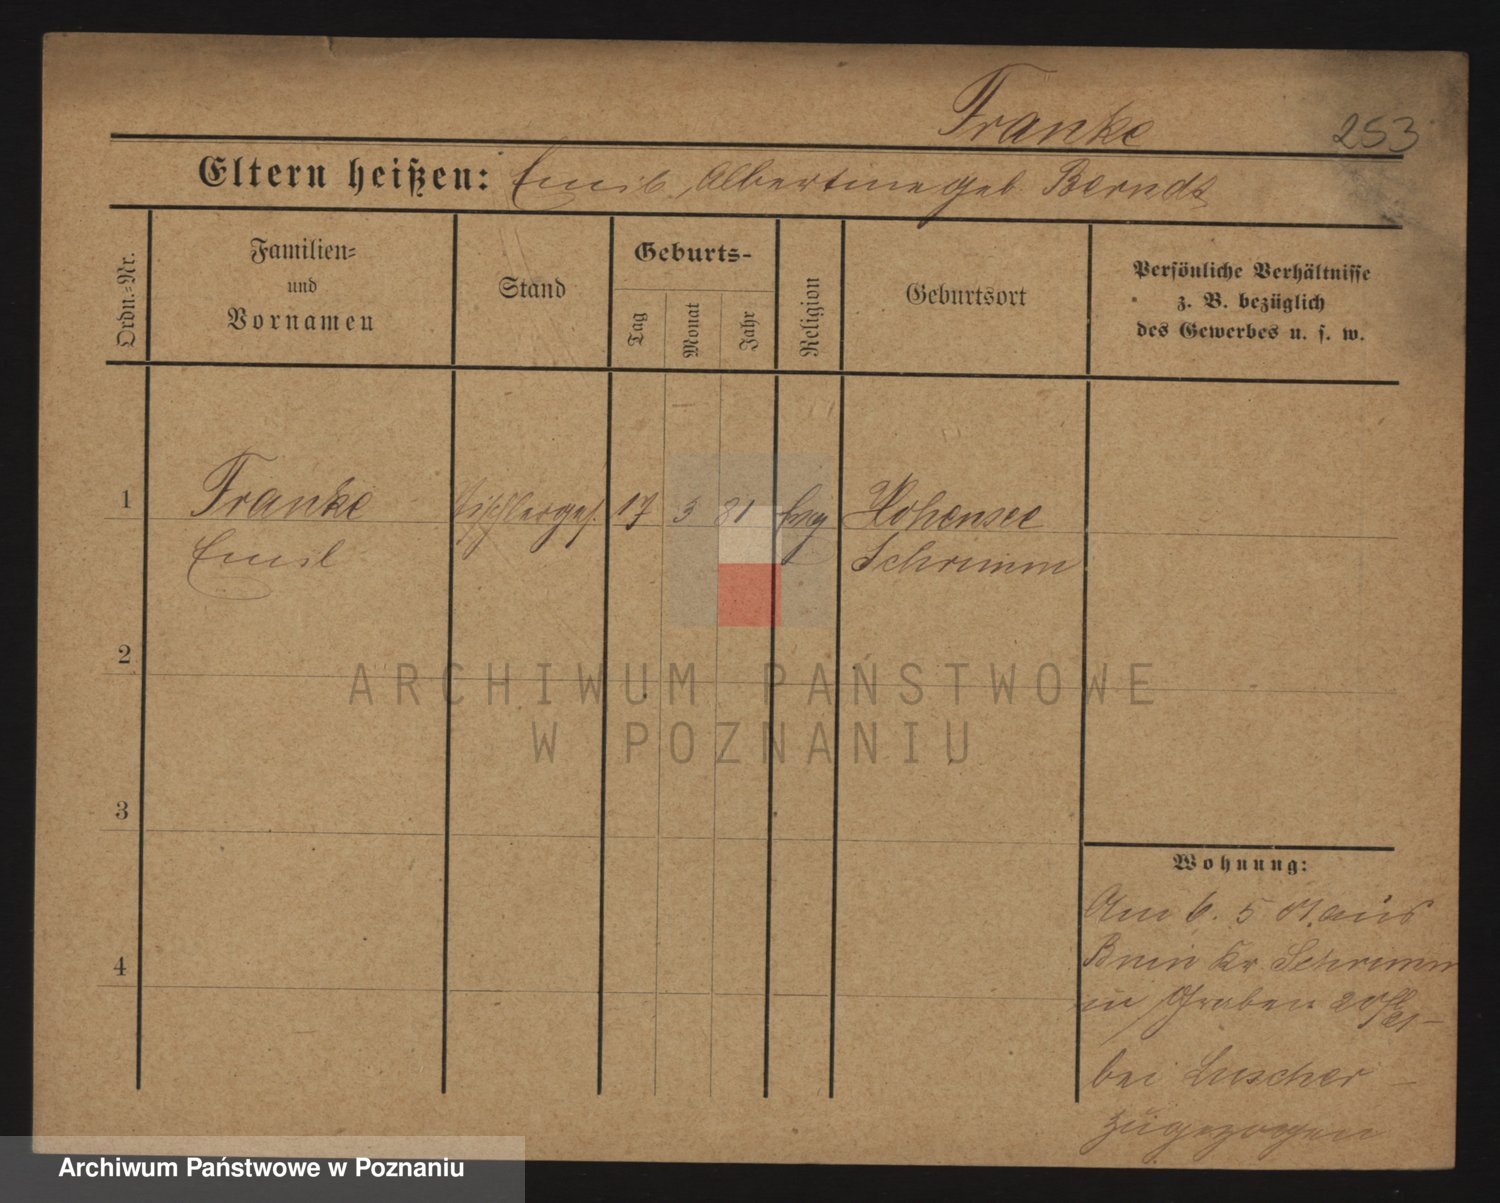 Franke
253
Eltern heißen: Emil, Albertine geb. Berndt
Ordn.=Nr.
Familien=
und
Vornamen
Stand
Geburts-
Tag
Monat
Jahr
Religion
Geburtsort
Persönliche Verhältnisse
z. B. bezüglich
des Gewerbes u. s. w.
1 Franke Tischlerges. 17 3 81 Evg Hohensee
Emil Schrimm
2
3
4
Wohnung:
Am 6. 5 01. aus
Bnin Kr. Schrimm
in Graben
bei Luscher
zugezogen
ARCHIWUM PAŃSTWOWE
W POZNANIU
Archiwum Państwowe w Poznaniu